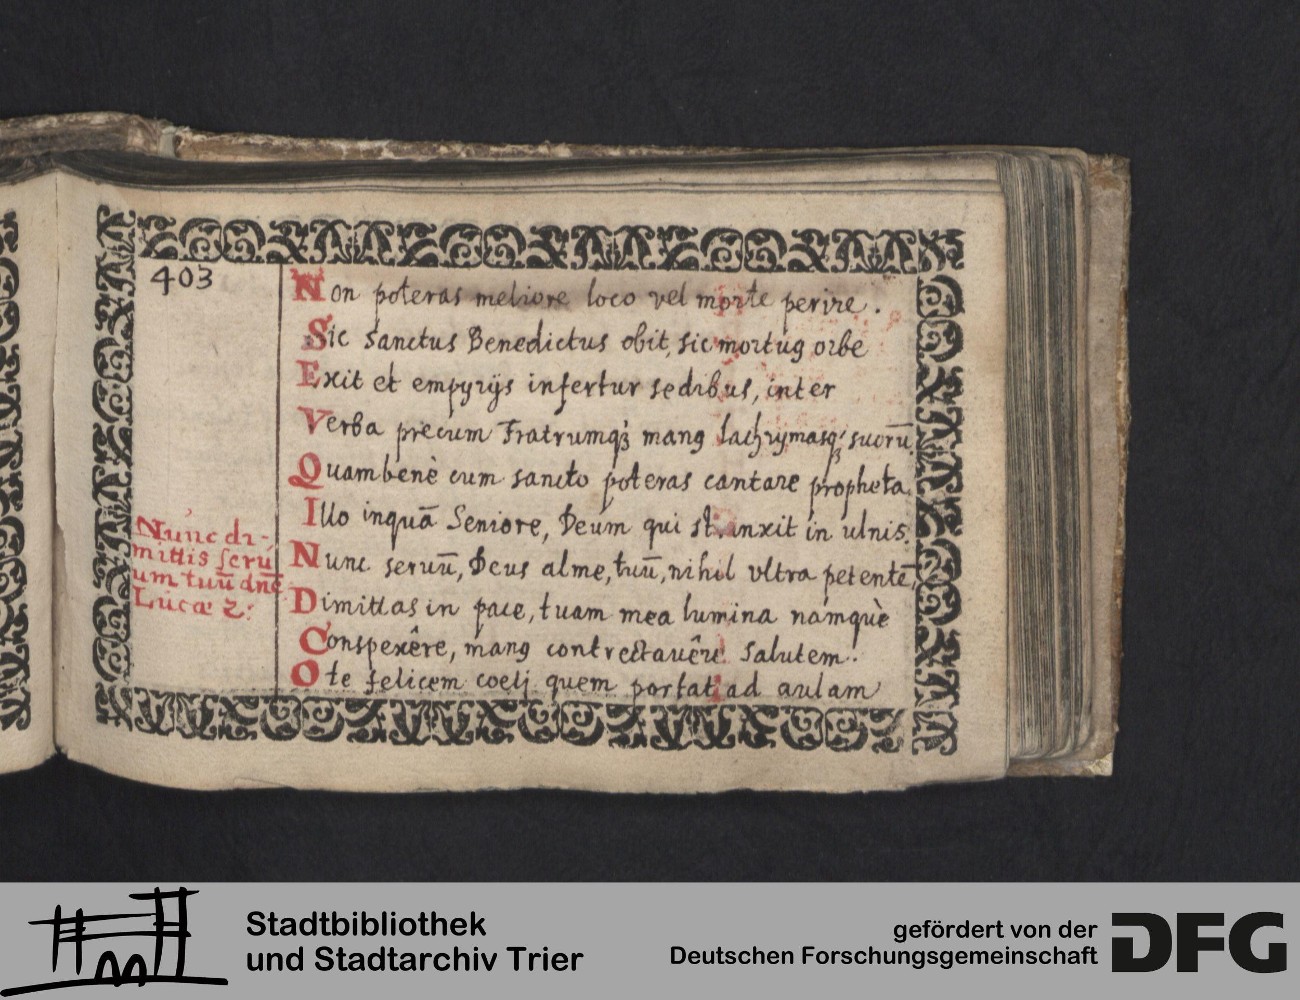 403
Non poteras meliore loco vel morte perire.
Sic sanctus Benedictus obit, sic mortuꝰ orbe
Exit et empyrijs infertur sedibus, inter
Verba precum Fratrumqꝫ manꝰ lachrymasqꝫ suorū.
Quambenè cum sancto poteras cantare propheta
Illo inquā Seniore, Deum qui strinxit in ulnis.
Nunc seruū, Deus alme, tuū, nihil vltra petentē,
Dimittas in pace, tuam mea lumina námquè
Conspexêre, manꝰ contrectauêre salutem.
O te felicem coeli quem portat ad aulam
Nunc di-
mittis seru
um tuū dnē
Lucæ 2.
Stadtbibliothek
und Stadtarchiv Trier
gefördert von der
Deutschen Forschungsgemeinschaft
DFG